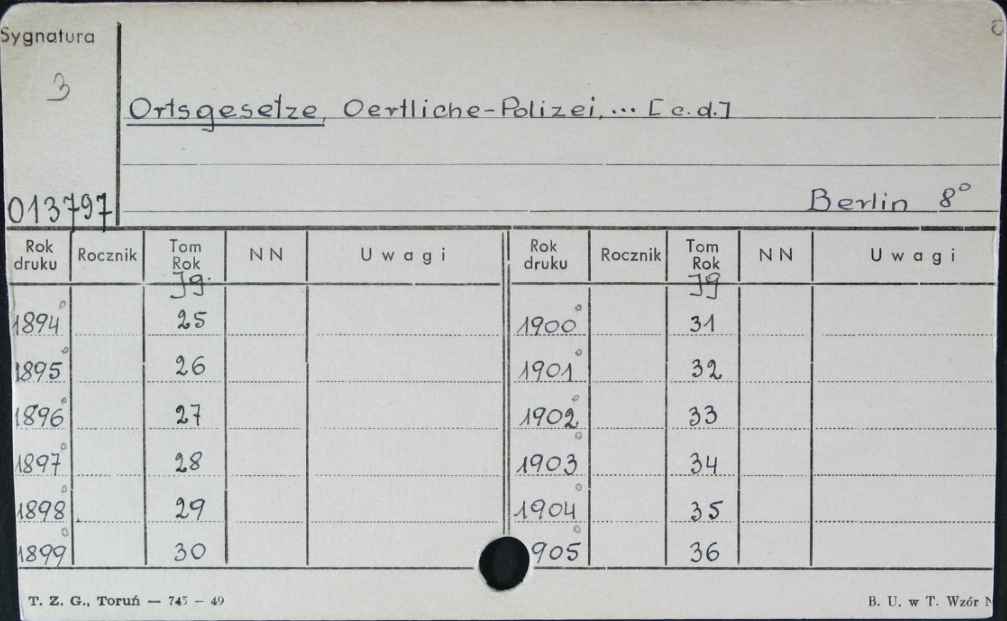 Sygnatura
3
Ortsgesetze, Oertliche-Polizei, ... [c.d.]
013797
Berlin 8°
Rok druku Rocznik Tom Rok NN Uwagi Rok druku Rocznik Tom Rok NN Uwagi
Jg. Jg
1894° 25 1900° 31
1895° 26 1901° 32
1896° 27 1902° 33
1897° 28 1903° 34
1898° 29 1904° 35
1899° 30 905° 36
T. Z. G., Toruń — 745 — 49 B. U. w T. Wzór